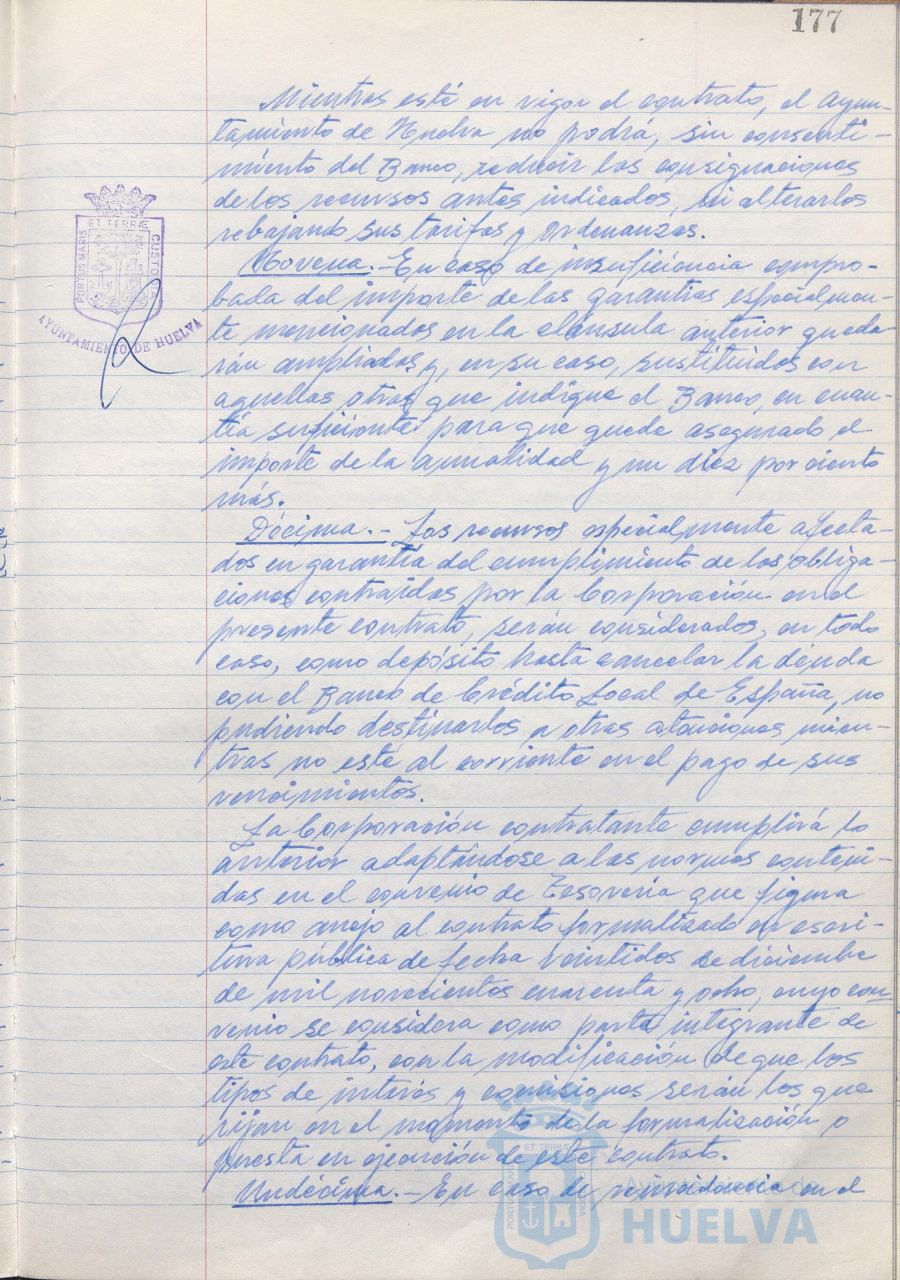 177
Mientras esté en vigor el contrato, el Ayun-
tamiento de Huelva no podrá, sin consenti-
miento del Banco, reducir las consignaciones
de los recursos antes indicados, ni alterarlos
rebajando sus tarifas y ordenanzas.
Novena.- En caso de insuficiencia compro-
bada del importe de las garantías especialmen-
te mencionados en la cláusula anterior queda-
rán ampliados y, en su caso, sustituidos con
aquellas otras que indique el Banco, en cuan-
tía suficiente para que quede asegurado el
importe de la anualidad y un diez por ciento
más.
Décima.- Los recursos especialmente afecta-
dos en garantía del cumplimiento de las obliga-
ciones contraídas por la Corporación en el
presente contrato, serán considerados, en todo
caso, como depósito hasta cancelar la deuda
con el Banco de Crédito Local de España, no
pudiendo destinarlos a otras atenciones mien-
tras no esté al corriente en el pago de sus
vencimientos.
La Corporación contratante cumplirá lo
anterior adaptándose a las normas conteni-
das en el convenio de Tesorería que figura
como anejo al contrato formalizado en escri-
tura pública de fecha veintidos de diciembre
de mil novecientos cuarenta y ocho, cuyo con-
venio se considera como parte integrante de
este contrato, con la modificación de que los
tipos de interés y comisiones serán los que
rijan en el momento de la formalización o
puesta en ejecución de este contrato.
Undécima.- En caso de reincidencia en el
PORTUS MARIS ET TERRÆ CUSTO
AYUNTAMIENTO DE HUELVA
PORTUS MARIS ET TERRÆ CUSTODIA
Ayuntamiento de
HUELVA